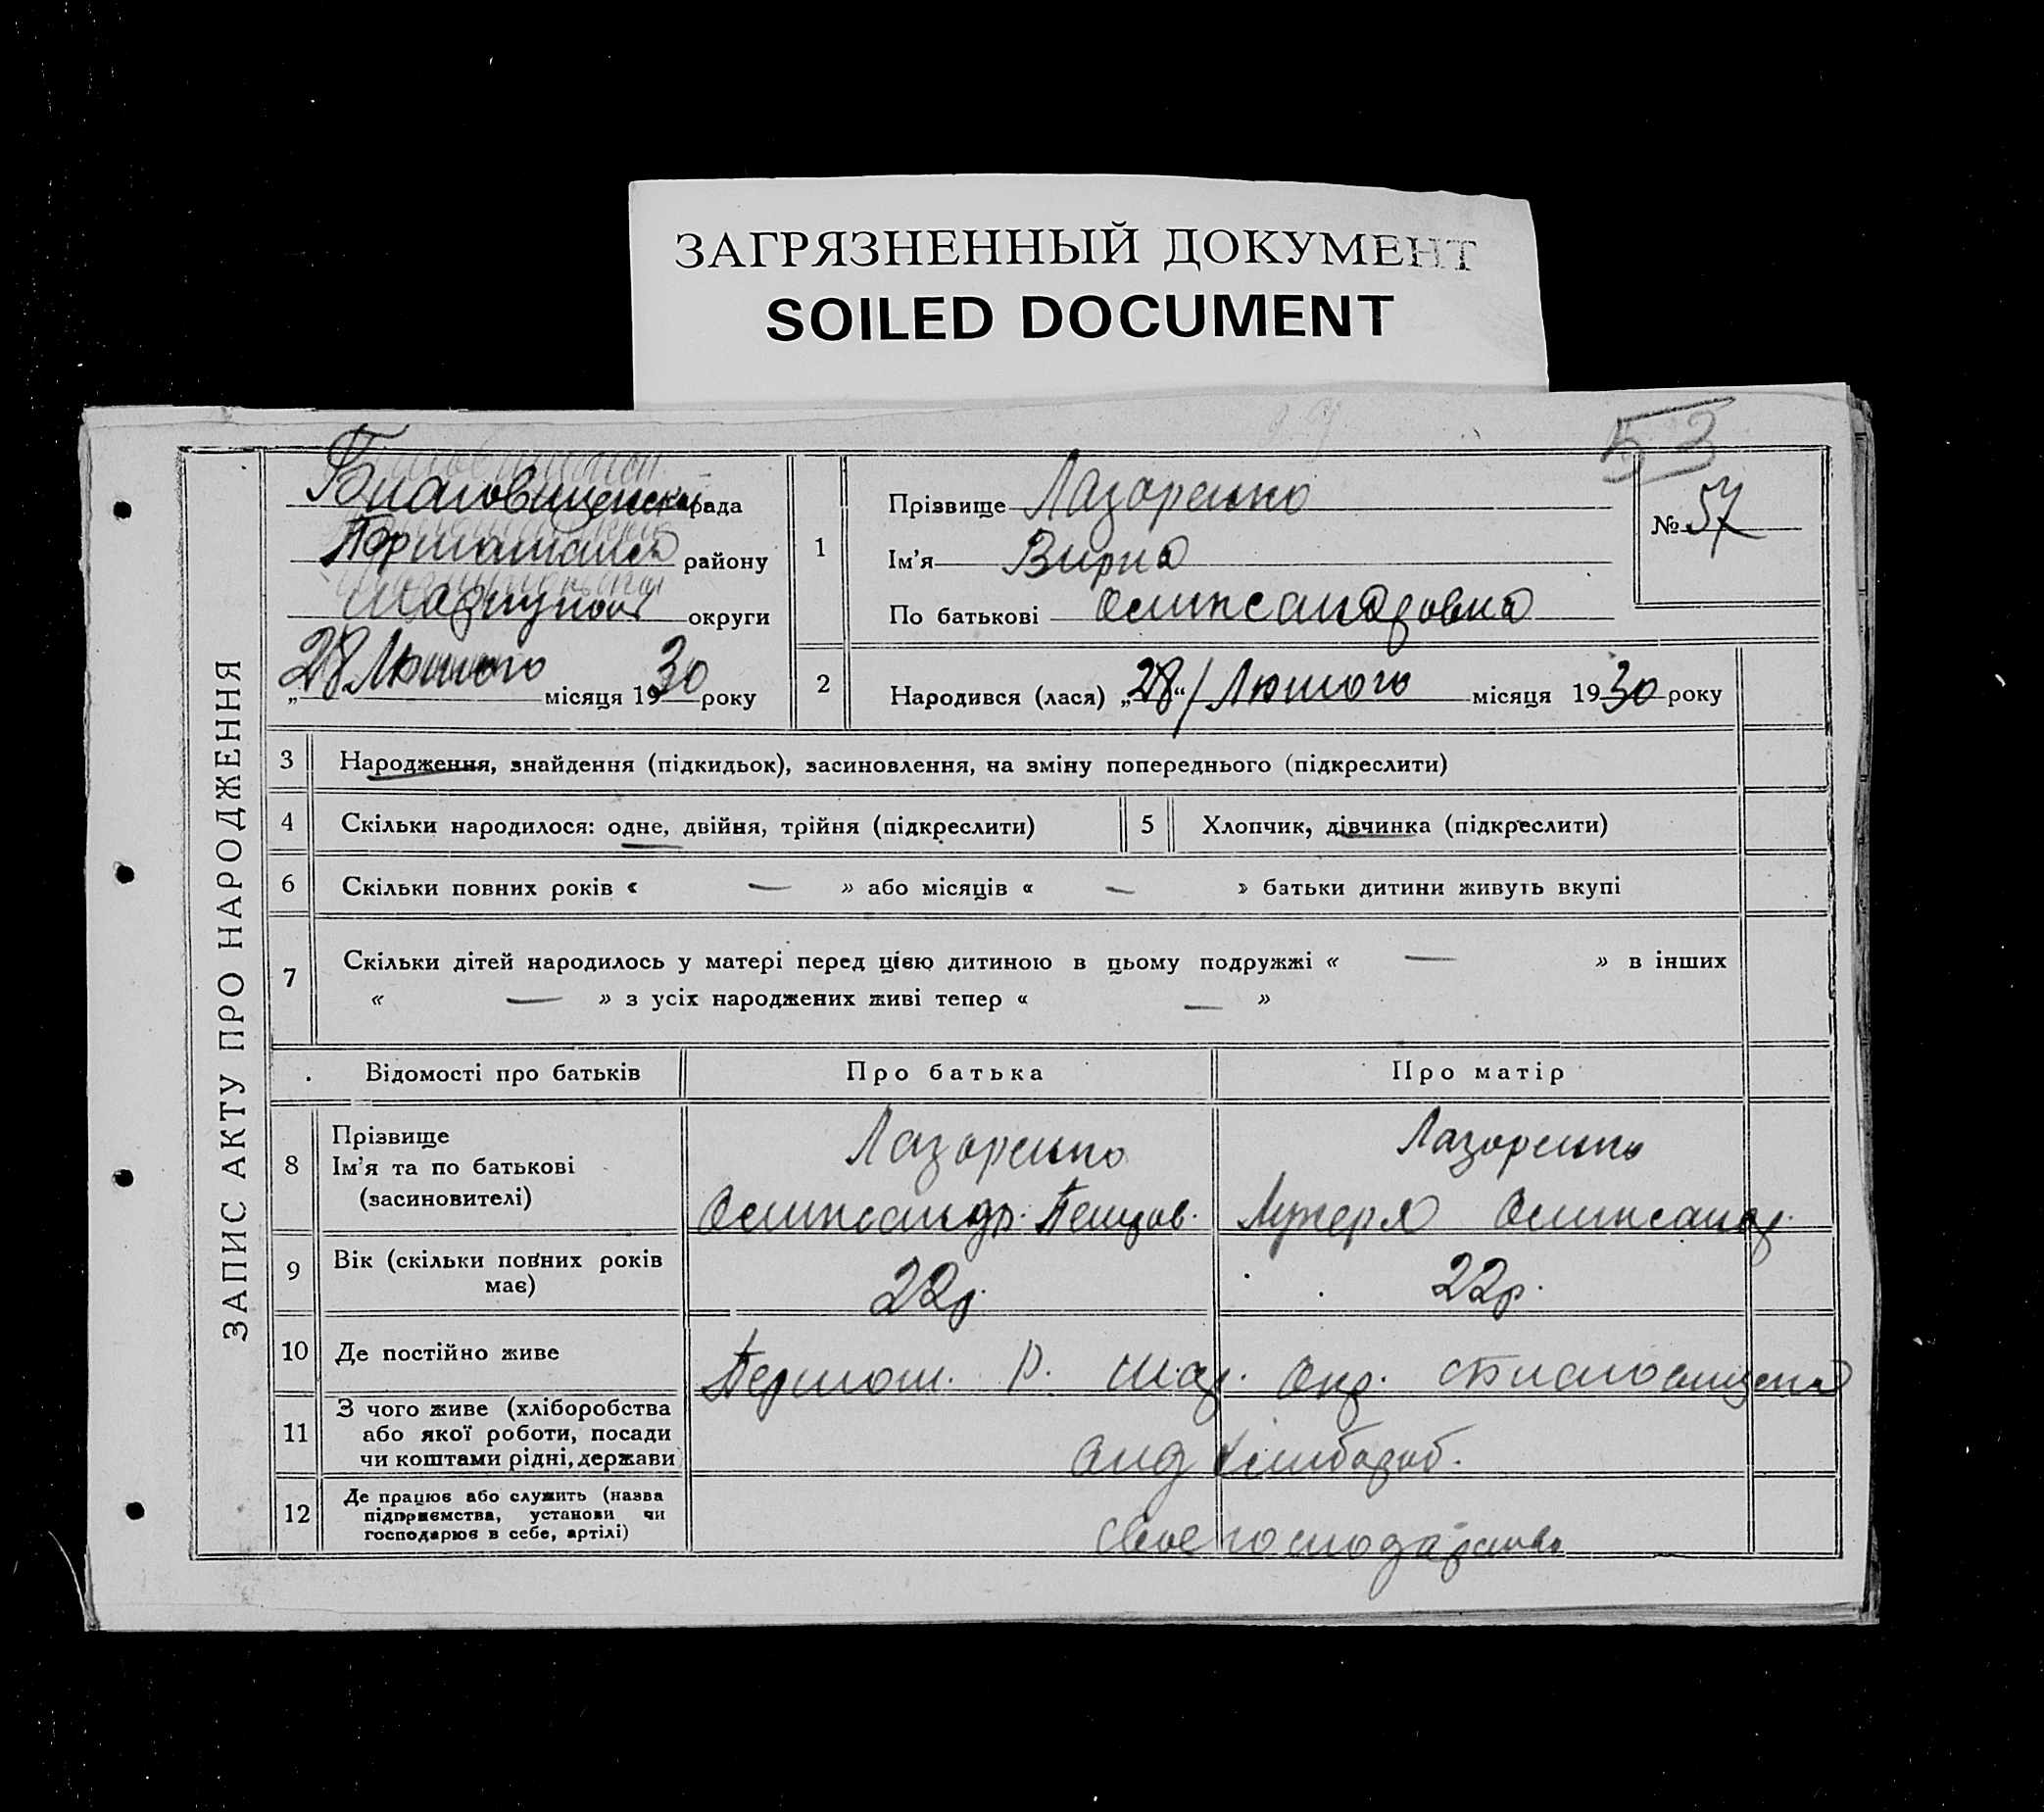 ЗАГРЯЗНЕННЫЙ ДОКУМЕНТ
SOILED DOCUMENT
53
ЗАПИС АКТУ ПРО НАРОДЖЕННЯ
Благовищенська рада
району
округи
„28 Лютого місяця 1930 року
1
Прізвище Лазоренко
Ім’я Вирна
По батькові Олександровна
№ 57
2
Народився (лася) „28“ Лютого місяця 1930 року
3 Народження, знайдення (підкидьок), засиновлення, на зміну попереднього (підкреслити)
4 Скільки народилося: одне, двійня, трійня (підкреслити)
5 Хлопчик, дівчинка (підкреслити)
6 Скільки повних років « — » або місяців « — » батьки дитини живуть вкупі
7 Скільки дітей народилось у матері перед цією дитиною в цьому подружжі « — » в інших
« — » з усіх народжених живі тепер « — »
Відомості про батьків Про батька Про матір
8 Прізвище
Ім’я та по батькові
(засиновителі)
Лазоренко
Олександр.
Лазоренко
Лукеря Олександр.
9 Вік (скільки повних років
має)
22р. 22р.
10 Де постійно живе
Першот. Р. Мар. Окр. с Благовищена
11 З чого живе (хліборобства
або якої роботи, посади
чи коштами рідні, держави
хлибороб.
12 Де працює або служить (назва
підприємства, установи чи
господарює в себе, артілі)
Свое господарство